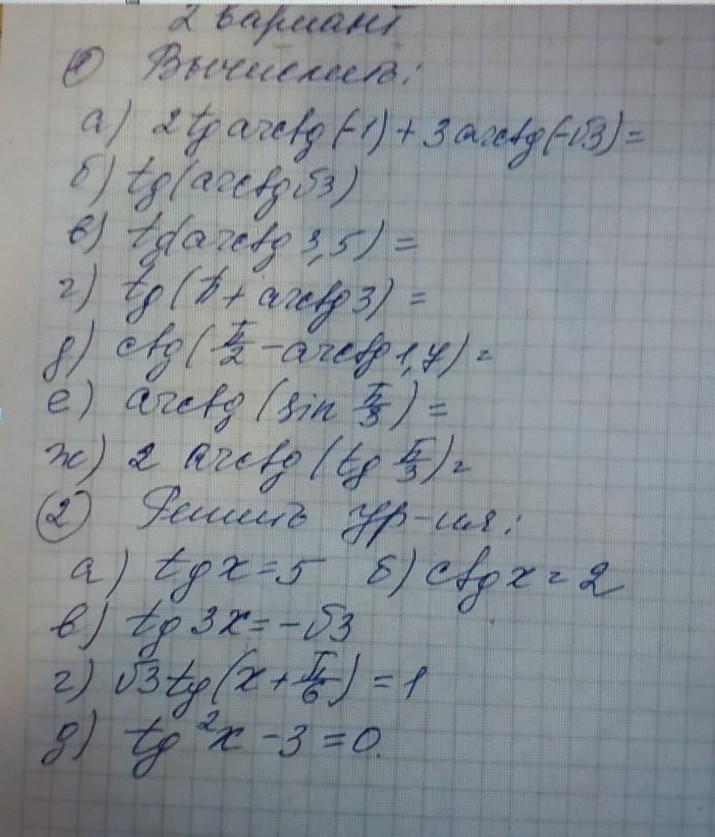 2 вариант
① Вычислить:
а) 2tg arcctg(-1) + 3 arcctg(-√3) =
б) tg(arcctg√3)
в) tg(arcctg 3,5) =
г) tg(π + arcctg 3) =
д) ctg(π/2 - arcctg 1,7) =
е) arcctg(sin π/3) =
ж) 2 arcctg(tg π/3) =
② Решить ур-ия:
а) tg x = 5 б) ctg x = 2
в) tg 3x = -√3
г) √3tg(x + π/6) = 1
д) tg²x - 3 = 0.